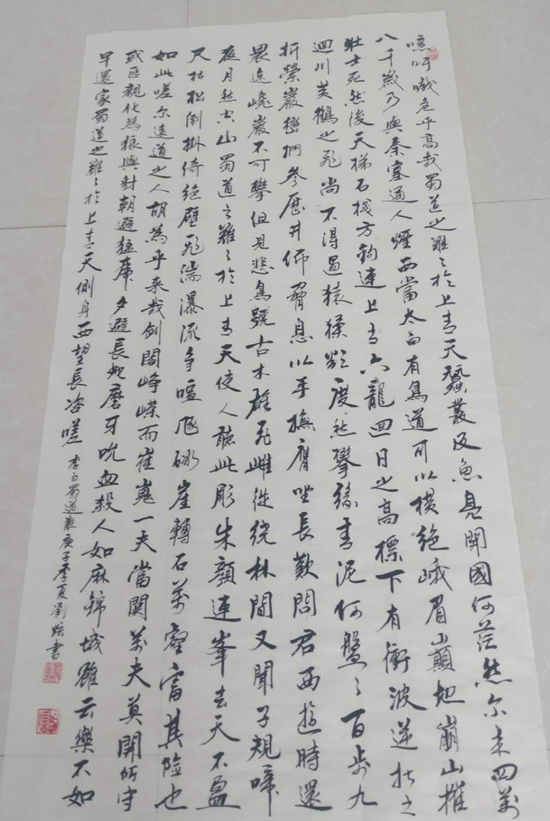 噫吁戲危乎高哉蜀道之難〻於上青天蠶叢及魚鳧開國何茫然尔来四萬
八千歲乃與秦塞通人煙西當太白有鳥道可以橫絕峨眉巔地崩山摧
壯士死然後天梯石棧方鉤連上有六龍回日之高標下有衝波逆折之
迴川黃鶴之飛尚不得過猿猱欲度愁攀緣青泥何盤〻百步九
折縈巖巒捫參歷井仰脅息以手撫膺坐長歎問君西遊時還
畏途巉巖不可攀但見悲鳥號古木雄飛雌從繞林間又聞子規啼
夜月愁空山蜀道之難〻於上青天使人聽此彫朱顏連峯去天不盈
尺枯松倒掛倚絕壁飛湍瀑流爭喧豗砯崖轉石萬壑雷其險也
如此嗟尔遠道之人胡為乎来哉劍閣崢嶸而崔嵬一夫當関萬夫莫開所守
或匪親化為狼與豺朝避猛虎夕避長蛇磨牙吮血殺人如麻錦城雖云樂不如
早還家蜀道之難〻於上青天側身西望長咨嗟 李白蜀道難庚子季夏劉書